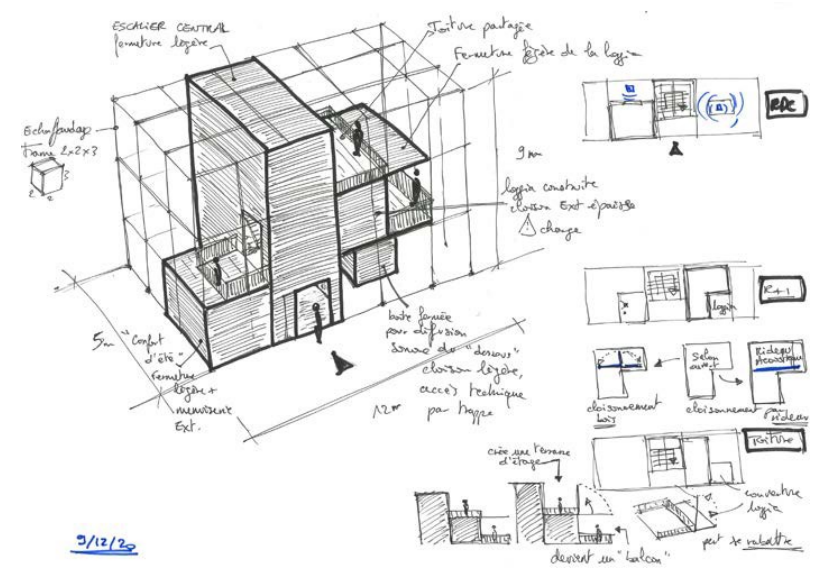 ESCALIER CENTRAL
fermeture légère
Toiture partagée
Fermeture légère de la loggia
RDC
Echafaudage
trame 2x2x3
3
2 2
9m
loggia construite
cloison Ext épaisse
charge
R+1
loggia
5m
"Confort
d'été"
Fermeture
légère +
menuiserie
Ext.
boite fermée
pour diffusion
sonore du "dessous"
cloison légère,
accès technique
par trappe
12m
Salon
ouvert
Rideau
Acoustique
cloisonnement
bois
cloisonnement par
rideau
toiture
crée une terrasse
d'étage
couverture
loggia
devient un "balcon"
peut se rabattre
9/12/20